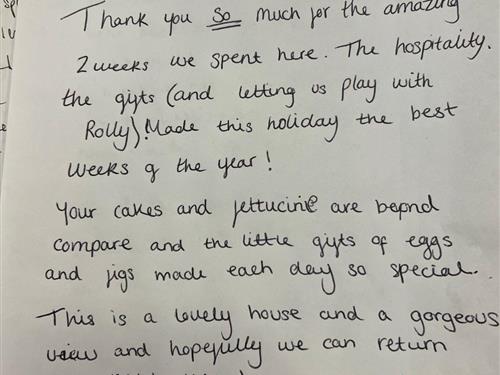 Thank you so much for the amazing
2 weeks we spent here. The hospitality.
the gifts (and letting us play with
Rolly)! Made this holiday the best
weeks of the year!
Your cakes and fettucinie are beyond
compare and the little gifts of eggs
and figs made each day so special.
This is a lovely house and a gorgeous
view and hopefully we can return